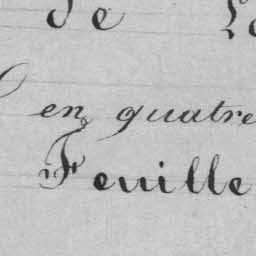 de
en quatre
Feuille